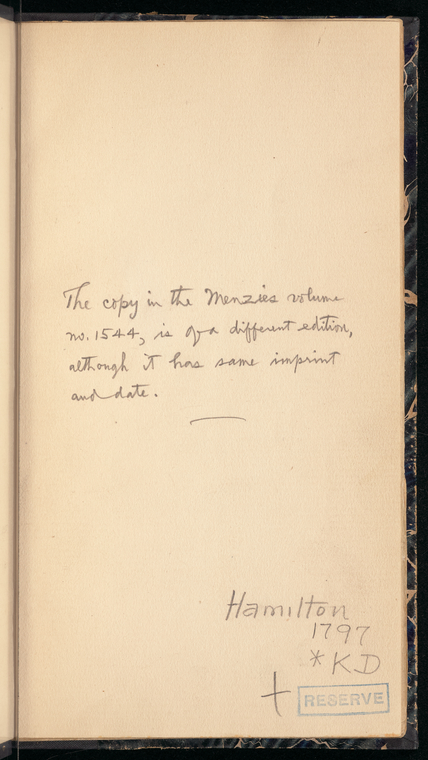 The copy in the Menzies volume
no. 1544, is of a different edition,
although it has same imprint
and date.
Hamilton
1797
*KD
RESERVE